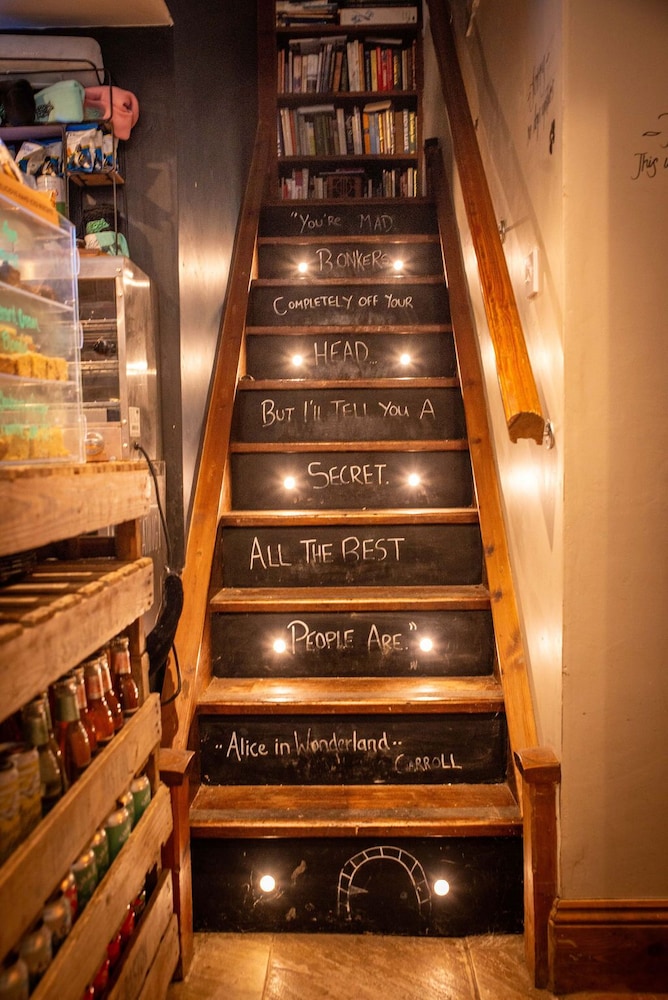 "You're MAD
BONKERS
COMPLETELY OFF YOUR
HEAD...
BUT I'LL TELL YOU A
SECRET.
ALL THE BEST
PEOPLE ARE."
"Alice in Wonderland"
CARROLL
This